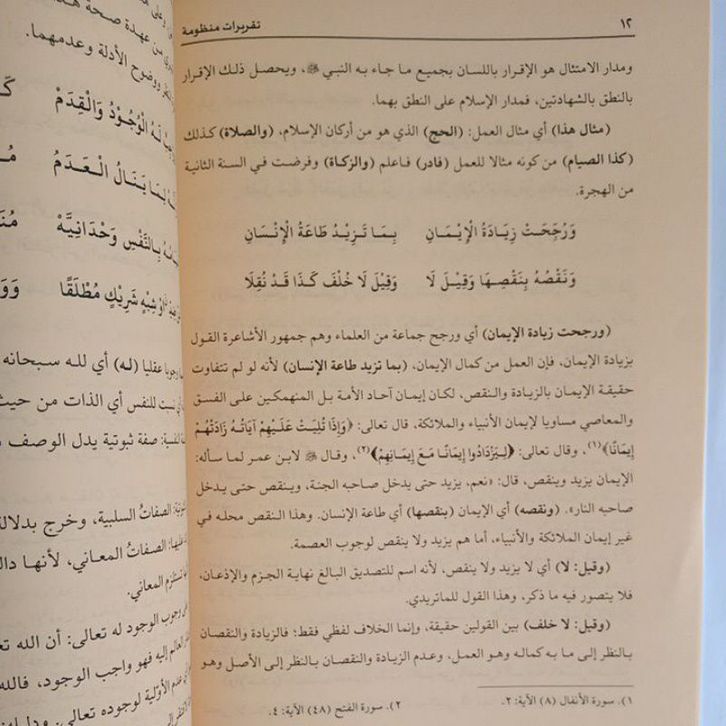 ١٢
تقريرات منظومة
ومدار الامتثال هو الإقرار باللسان بجميع ما جاء به النبي ﷺ، ويحصل ذلك الإقرار
بالنطق بالشهادتين، فمدار الإسلام على النطق بهما.
(مثال هذا) أي مثال العمل: (الحج) الذي هو من أركان الإسلام، (والصلاة) كذلك
(كذا الصيام) من كونه مثالا للعمل (فادر) فاعلم (والزكاة) وفرضت في السنة الثانية
من الهجرة.
وَرُجِّحَتْ زِيَادَةُ الْإِيْمَانِ بِمَا تَزِيْدُ طَاعَةُ الْإِنْسَانِ
وَنَقْصُهُ بِنَقْصِهَا وَقِيْلَ لَا وَقِيْلَ لَا خُلْفَ كَذَا قَدْ نُقِلَا
(ورجحت زيادة الإيمان) أي ورجح جماعة من العلماء وهم جمهور الأشاعرة القول
بزيادة الإيمان، فإن العمل من كمال الإيمان، (بما تزيد طاعة الإنسان) لأنه لو لم تتفاوت
حقيقة الإيمان بالزيادة والنقص، لكان إيمان آحاد الأمة بل المنهمكين على الفسق
والمعاصي مساويا لإيمان الأنبياء والملائكة، قال تعالى: ﴿وَإِذَا تُلِيَتْ عَلَيْهِمْ آيَاتُهُ زَادَتْهُمْ
إِيمَانًا﴾(١)، وقال تعالى: ﴿لِيَزْدَادُوا إِيمَانًا مَعَ إِيمَانِهِمْ﴾(٢)، وقال ﷺ لابن عمر لما سأله:
الإيمان يزيد وينقص، قال: «نعم، يزيد حتى يدخل صاحبه الجنة، وينقص حتى يدخل
صاحبه النار». (ونقصه) أي الإيمان (بنقصها) أي طاعة الإنسان. وهذا النقص محله في
غير إيمان الملائكة والأنبياء، أما هم يزيد ولا ينقص لوجوب العصمة.
(وقيل: لا) أي لا يزيد ولا ينقص، لأنه اسم للتصديق البالغ نهاية الجزم والإذعان،
فلا يتصور فيه ما ذكر، وهذا القول للماتريدي.
(وقيل: لا خلف) بين القولين حقيقة، وإنما الخلاف لفظي فقط؛ فالزيادة والنقصان
بالنظر إلى ما به كماله وهو العمل، وعدم الزيادة والنقصان بالنظر إلى الأصل وهو
١) سورة الأنفال (٨) الآية: ٢.
٢) سورة الفتح (٤٨) الآية: ٤.
من عهدة صحة
ووضوح الأدلة وعدمهما.
لَهُ الْوُجُوْدُ وَالْقِدَمْ
بِمَا يَنَالُ الْعَدَمُ
بِالنَّفْسِ وَحْدَانِيَّهْ
شِبْهٍ شَرِيْكٍ مُطْلَقًا
عقليا (له) أي لله سبحانه
للنفس أي الذات من حيث
صفة ثبوتية يدل الوصف
الصفات السلبية، وخرج بدلالة
الصفات المعاني، لأنها
تستلزم المعاني.
وجوب الوجود له تعالى: أن الله
إليه فهو واجب الوجود، فالله
عدم الأولية لوجوده تعالى.